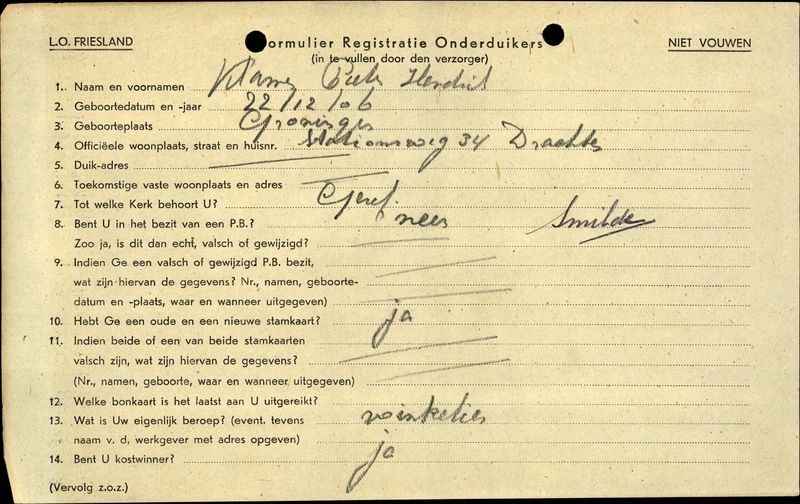 L.O. FRIESLAND
Formulier Registratie Onderduikers
NIET VOUWEN
(in te vullen door den verzorger)
1. Naam en voornamen Pieter Hendrik
2. Geboortedatum en -jaar 22/12/06
3. Geboorteplaats Groningen
4. Officiëele woonplaats, straat en huisnr. Stationsweg 34 Drachten
5. Duik-adres
6. Toekomstige vaste woonplaats en adres
7. Tot welke Kerk behoort U? Geref.
8. Bent U in het bezit van een P.B.? neen Smilde
Zoo ja, is dit dan echt, valsch of gewijzigd?
9. Indien Ge een valsch of gewijzigd P.B. bezit,
wat zijn hiervan de gegevens? Nr., namen, geboorte-
datum en -plaats, waar en wanneer uitgegeven)
10. Hebt Ge een oude en een nieuwe stamkaart? ja
11. Indien beide of een van beide stamkaarten
valsch zijn, wat zijn hiervan de gegevens?
(Nr., namen, geboorte, waar en wanneer uitgegeven)
12. Welke bonkaart is het laatst aan U uitgereikt?
13. Wat is Uw eigenlijk beroep? (event. tevens
naam v. d. werkgever met adres opgeven)
14. Bent U kostwinner? ja
(Vervolg z.o.z.)